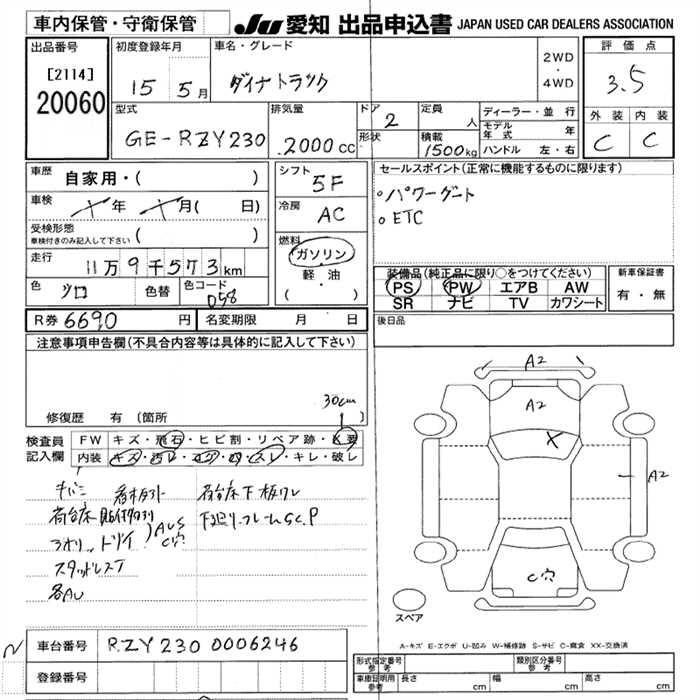 車内保管・守衛保管
JU 愛知 出品申込書 JAPAN USED CAR DEALERS ASSOCIATION
出品番号
[2114]
20060
初度登録年月
15 5月
車名・グレード
ダイナトラック
2WD
・
4WD
評価点
3.5
外装 内装
C C
型式
GE-RZY230
排気量
2000cc
ドア
2
形状
定員
人
積載
1500kg
ディーラー・並行
モデル年式 年
ハンドル 左・右
車歴
自家用・( )
車検
年 月( 日)
受検形態
車検付きのみ記入して下さい ( )
走行
11万9千573km
色
シロ
色替
色コード
058
シフト
5F
冷房
AC
燃料
ガソリン
・
軽・油
( )
セールスポイント(正常に機能するものに限ります)
。パワーゲート
。ETC
装備品(純正品に限り○をつけてください)
PS PW エアB AW
SR ナビ TV カワシート
新車保証書
有・無
R券 6690 円
名変期限 月 日
後日品
注意事項申告欄(不具合内容等は具体的に記入して下さい)
30cm
修復歴 有(箇所 )
検査員
記入欄
FW キズ・飛石・ヒビ割・リペア跡・X要
内装 キズ・汚レ・コゲ・穴・スレ・キレ・破レ
荷台床下板ワレ
スタッドレスT
各AU
A2
A2
X
A2
C穴
スペア
A-キズ E-エクボ U-凹み W-補修跡 S-サビ C-腐食 XX-交換済
車台番号
RZY230 0006246
登録番号
形式指定番号
参考
類別区分番号
参考
車庫証明用
参考
長さ cm
幅 cm
高さ cm